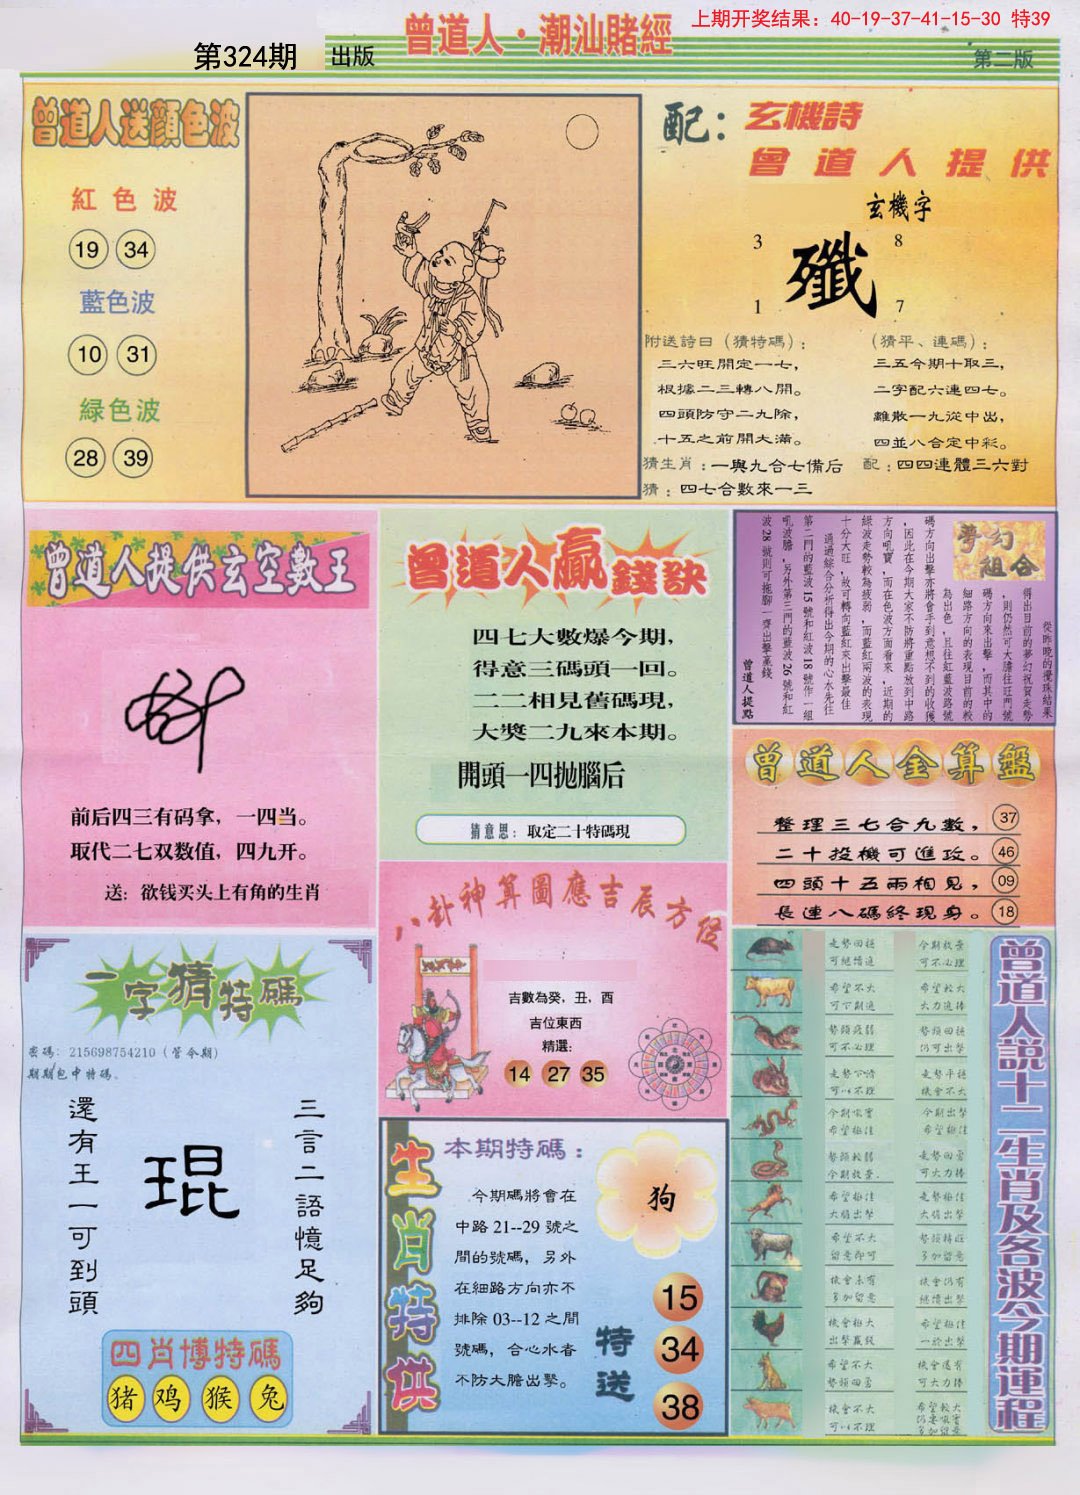 上期开奖结果：40-19-37-41-15-30 特39
曾道人·潮汕賭經
第324期 出版
第二版
曾道人送顏色波
紅色波
19 34
藍色波
10 31
緑色波
28 39
配：玄機詩
曾道人提供
玄機字
3 8
殲
1 7
附送詩曰（猜特碼）：
三六旺開定一七，
根據二三轉八開。
四頭防守二九除，
十五之前開大滿。
猜生肖：一與九合七備后
猜：四七合數來一三
（猜平、連碼）：
三五今期十取三，
二字配六連四七。
離散一九從中出，
四並八合定中彩。
配：四四連體三六對
曾道人提供玄空數王
前后四三有码拿，一四当。
取代二七双数值，四九开。
送：欲钱买头上有角的生肖
曾道人贏錢訣
四七大數爆今期，
得意三碼頭一回。
二二相見舊碼現，
大獎二九來本期。
開頭一四抛腦后
猜意思：取定二十特碼現
夢幻組合
從昨晚的攪珠結果
得出目前的夢幻祝賀走勢
，則仍然可大膽往旺門號
碼方向來出擊，而其中的
細路方向的表現目前的較
為出色，且往紅藍波路號
碼方向出擊亦將會手到意想不到的收獲
，因此在今期大家不防將重點放到中路
方向吼實，而在色波方面看來，近期的
綠波走勢較為疲弱，而藍紅兩波的表現
十分大旺，故可轉向藍紅來出擊最佳
通過綜合分析得出今期的心水先往
第二門的藍波15號和紅波18號作一組
吼波膽，另外第三門的藍波26號和紅
波28號則可拖腳一齊出擊贏錢
曾道人提點
曾道人金算盤
整理三七合九數， 37
二十投機可進攻。 46
四頭十五兩相見， 09
長連八碼終現身。 18
八卦神算圖應吉辰方位
吉數為癸，丑，酉
吉位東西
精選：
14 27 35
一字猜特碼
密碼：215698754210（管今期）
期期包中特碼。
三言二語憶足夠
琨
還有王一可到頭
四肖博特碼
猪 鸡 猴 兔
生肖特供
本期特碼：
今期碼將會在
中路 21--29 號之
間的號碼，另外
在細路方向亦不
排除 03--12 之間
號碼，合心水者
不防大膽出擊。
狗
特送
15
34
38
曾道人說十二生肖及各波今期運程
走勢回穩
可繼續追
今期放棄
可不必理
希望不大
可下期追
希望較大
大力追捧
勢頭疲弱
可不必理
勢頭回穩
仍可出擊
走勢下滑
可以不理
走勢平穩
機會不大
今期吼實
希望極佳
今期出擊
希望極佳
勢頭較弱
今期放棄
走勢回勇
可大力捧
希望極佳
大膽出擊
走勢極佳
大膽出擊
希望不大
留意即可
勢頭轉旺
多加留意
機會未有
多加留意
機會仍有
繼續出擊
機會極大
出擊贏錢
希望極佳
一於出擊
希望不大
勢頭回勇
機會還有
可大力捧
機會不大
可以不理
希望較大
仍要吼實
多加留意